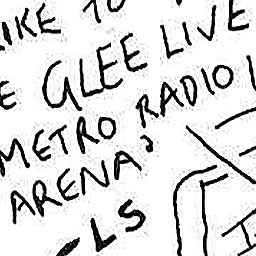 IKE TO
E GLEE LIVE
METRO RADIO
ARENA?
ELS